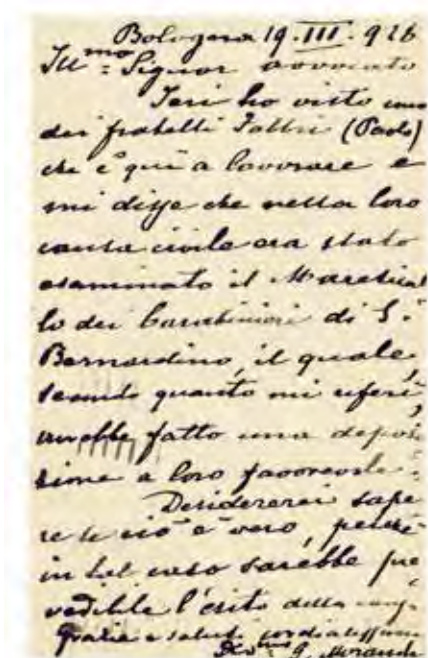 Bologna 19.III.926
Ill.mo Signor avvocato
Ieri ho visto uno
dei fratelli Fabbri (Paolo)
che è qui a lavorare e
mi disse che nella loro
causa civile era stato
esaminato il Marescial
lo dei Carabinieri di S.
Bernardino, il quale,
secondo quanto mi riferì,
avrebbe fatto una deposi
zione a loro favorevole.
Desidererei sape
re se ciò è vero, perchè
in tal caso sarebbe pre
vedibile l'esito della causa.
Grazie e saluti cordialissimi
Dev.mo G. Morandi